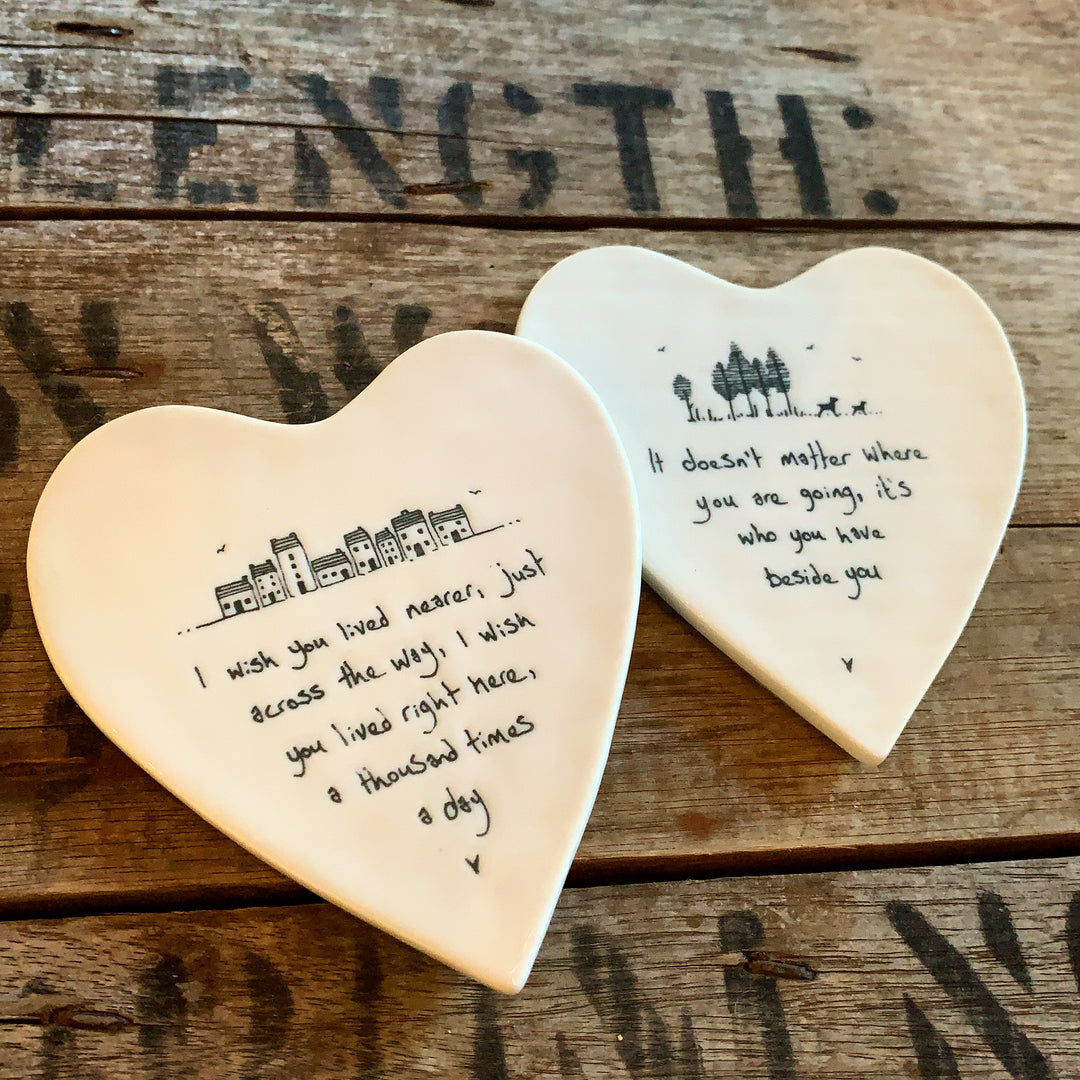 LENGTH:
I wish you lived nearer, just
across the way, I wish
you lived right here,
a thousand times
a day
It doesn't matter where
you are going, it's
who you have
beside you